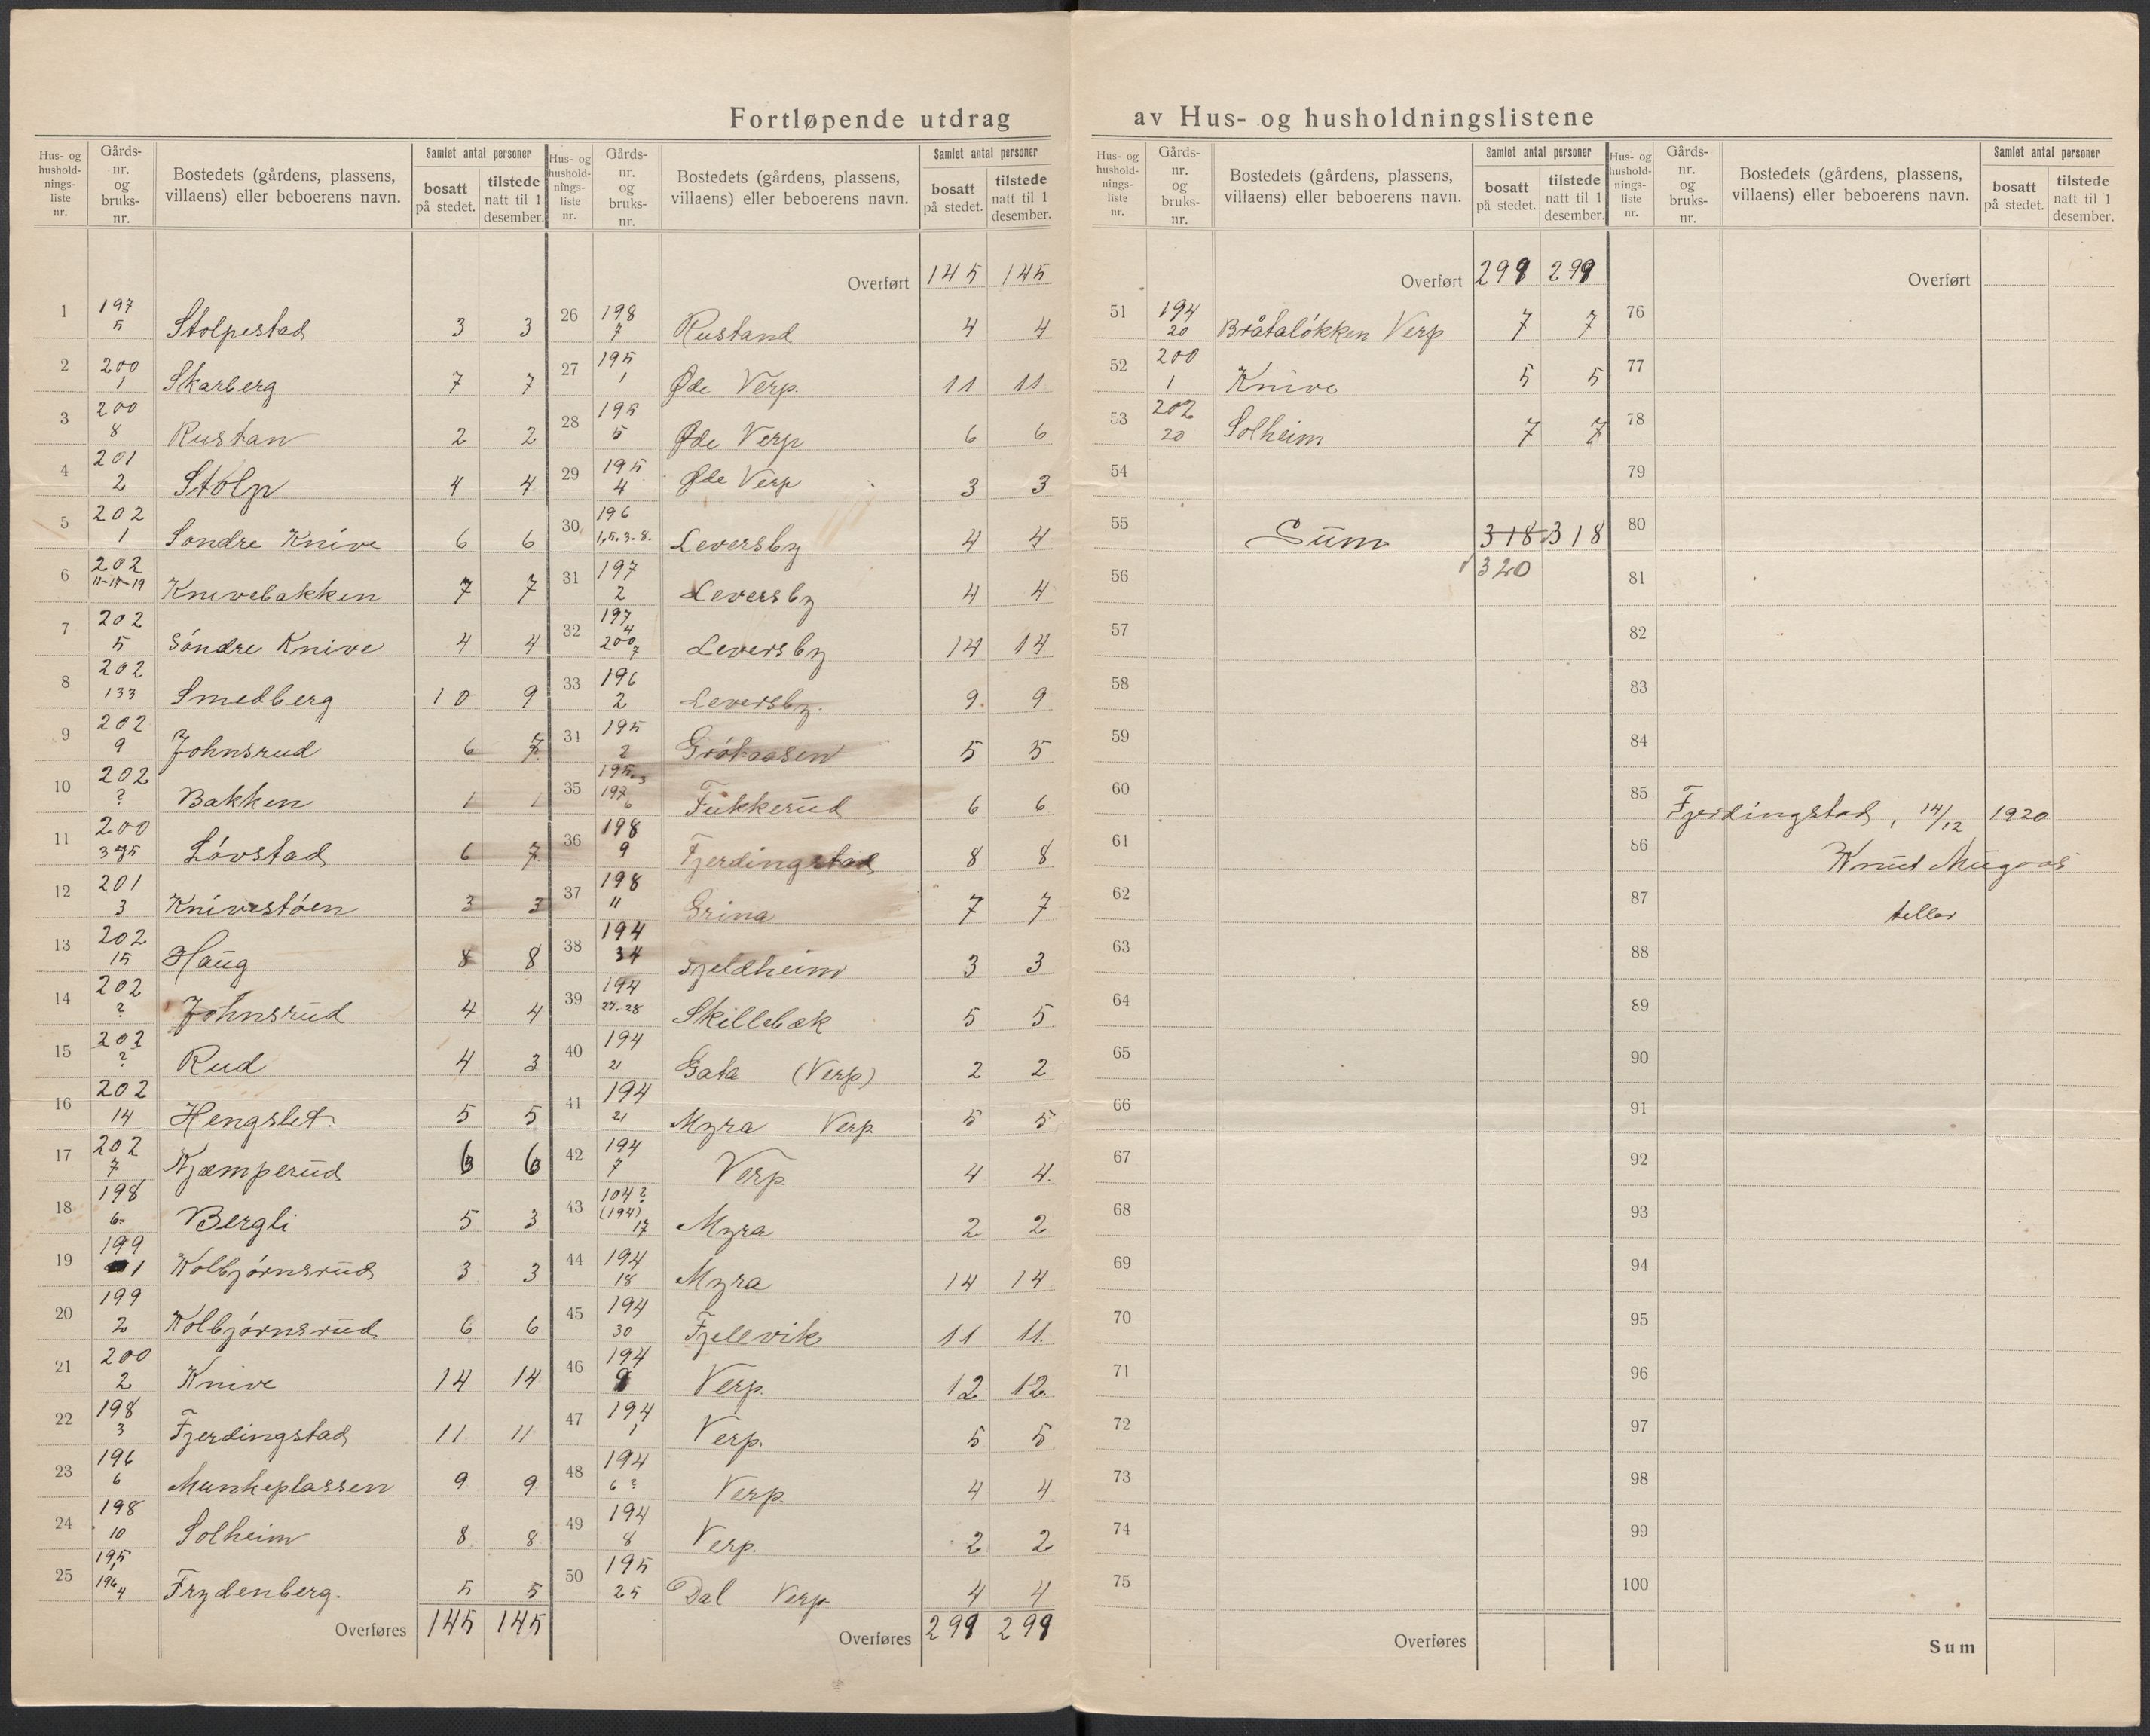 Fortløpende utdrag av Hus- og husholdningslistene
Hus- og husholdnings-liste nr. | Gårds-nr. og bruks-nr. | Bostedets (gårdens, plassens, villaens) eller beboerens navn. | Samlet antal personer | bosatt på stedet. | tilstede natt til 1 desember.
1 197 5 Stolpestad 3 3
2 200 1 Skarberg 7 7
3 200 8 Rustan 2 2
4 201 2 Stolp 4 4
5 202 1 Søndre Knive 6 6
6 202 11-17-19 Knivebakken 7 7
7 202 5 Søndre Knive 4 4
8 202 133 Smedberg 10 9
9 202 9 Johnsrud 6 7
10 202 ? Bakken 1 1
11 200 Løvstad 6 7
12 201 3 Knivestøen 3 3
13 202 15 Haug 8 8
14 202 ? Johnsrud 4 4
15 202 ? Rud 4 3
16 202 14 Hengslet. 5 5
17 202 7 Kjæmperud 6 6
18 198 6 Bergli 5 3
19 199 1 Kolbjørnsrud 3 3
20 199 2 Kolbjørnsrud 6 6
21 200 2 Knive 14 14
22 198 3 Fjerdingstad 11 11
23 196 6 Munkeplassen 9 9
24 198 10 Solheim 8 8
25 195 196 4 Frydenberg. 5 5
Overføres 145 145
Hus- og husholdnings-liste nr. | Gårds-nr. og bruks-nr. | Bostedets (gårdens, plassens, villaens) eller beboerens navn. | Samlet antal personer | bosatt på stedet. | tilstede natt til 1 desember.
Overført 145 145
26 198 7 Rustand 4 4
27 195 1 Øde Verp. 11 11
28 195 5 Øde Verp 6 6
29 195 4 Øde Verp 3 3
30 196 1, 5. 3-8. Leversby 4 4
31 197 2 Leversby 4 4
32 197 4 200 7 Leversby 14 14
33 196 2 Leversby. 9. 9
34 195 2 Grótaasen 5 5
35 195. 3 197 6 Fukkerud 6 6
36 198 9 Fjerdingstad 8 8
37 198 11 Grina 7 7
38 194 34 Fjeldheim 3 3
39 194 27-28 Skillebæk 5 5
40 194 21 Gata (Verp) 2 2
41 194 21 Myra Verp. 5 5
42 194 7 Verp. 4 4.
43 104? (194) 17 Myra 2 2
44 194 18 Myra 14 14
45 194 30 Fjellvik 11 11.
46 194 9 Verp. 12 12.
47 194 1 Verp. 5 5
48 194 6 ? Verp. 4 4
49 194 8 Verp. 2 2
50 195 25 Dal Verp 4 4
Overføres 299 299
Hus- og husholdnings-liste nr. | Gårds-nr. og bruks-nr. | Bostedets (gårdens, plassens, villaens) eller beboerens navn. | Samlet antal personer | bosatt på stedet. | tilstede natt til 1 desember.
Overført 299 299
51 194 20 Bråtaløkken Verp 7 7
52 200 1 Knive 5 5
53 202 20 Solheim 7 7
54
55 Sum 318 318
56 320
57
58
59
60
61
62
63
64
65
66
67
68
69
70
71
72
73
74
75
Overføres
Hus- og husholdnings-liste nr. | Gårds-nr. og bruks-nr. | Bostedets (gårdens, plassens, villaens) eller beboerens navn. | Samlet antal personer | bosatt på stedet. | tilstede natt til 1 desember.
Overført
76
77
78
79
80
81
82
83
84
85 Fjerdingstad, 14/12 1920
86 Knut
87 teller
88
89
90
91
92
93
94
95
96
97
98
99
100
Sum